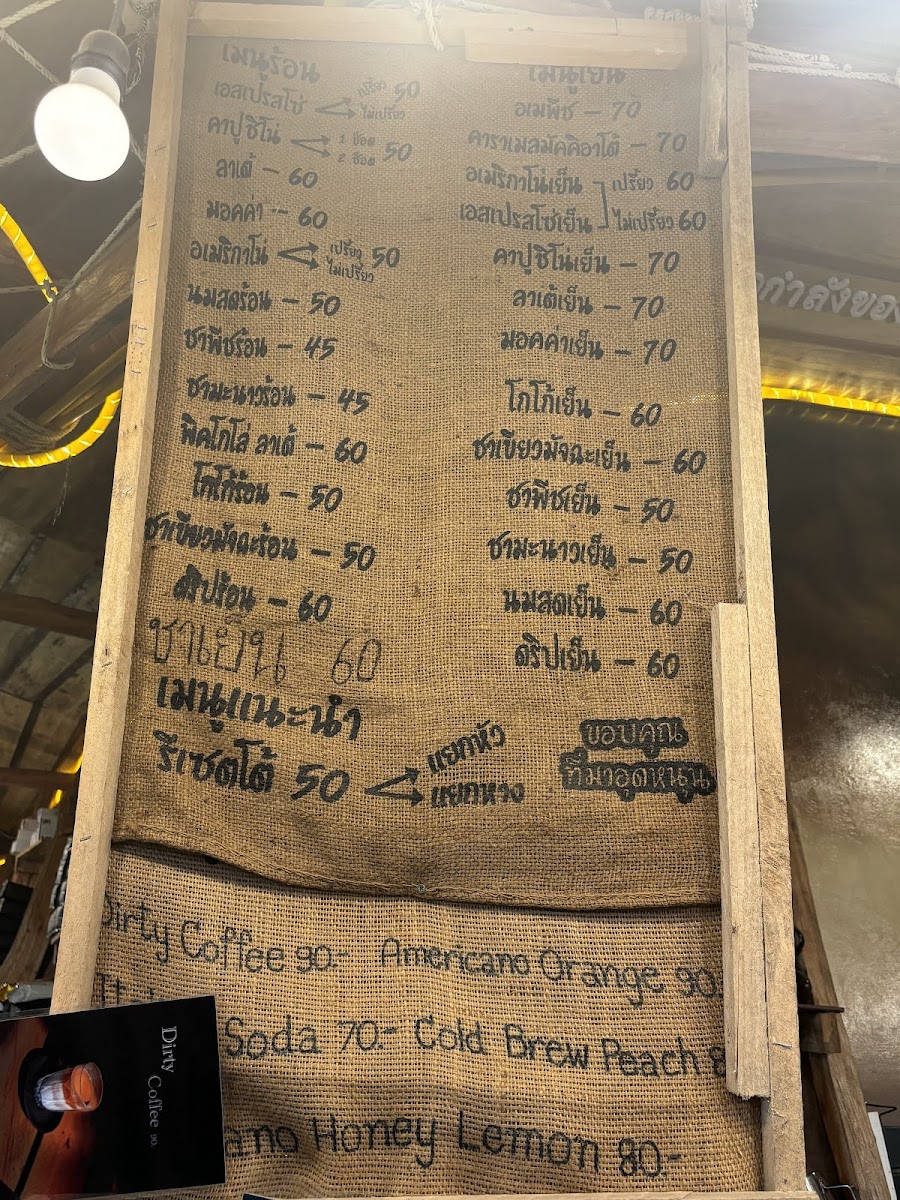 เมนูร้อน
เอสเปรสโซ่ เปรี้ยว 50
ไม่เปรี้ยว
คาปูชิโน่ 1 ช็อต 50
2 ช็อต
ลาเต้ - 60
มอคค่า - 60
อเมริกาโน่ เปรี้ยว 50
ไม่เปรี้ยว
นมสดร้อน - 50
ชาพีชร้อน - 45
ชามะนาวร้อน - 45
พิคโกโล่ ลาเต้ - 60
โกโก้ร้อน - 50
ชาเขียวมัจฉะร้อน - 50
ดริปร้อน - 60
ชาเย็น 60
เมนูแนะนำ
รีเซตโต้ 50 แยกหัว
แยกหาง
เมนูเย็น
อเมพีช - 70
คาราเมลมัคคิอาโต้ - 70
อเมริกาโน่เย็น เปรี้ยว 60
เอสเปรสโซ่เย็น ไม่เปรี้ยว 60
คาปูชิโน่เย็น - 70
ลาเต้เย็น - 70
มอคค่าเย็น - 70
โกโก้เย็น - 60
ชาเขียวมัจฉะเย็น - 60
ชาพีชเย็น - 50
ชามะนาวเย็น - 50
นมสดเย็น - 60
ดริปเย็น - 60
ขอบคุณ
ที่มาอุดหนุน
Dirty Coffee 90.- Americano Orange 90
Soda 70.- Cold Brew Peach
Honey Lemon 80.-
Dirty Coffee 90.